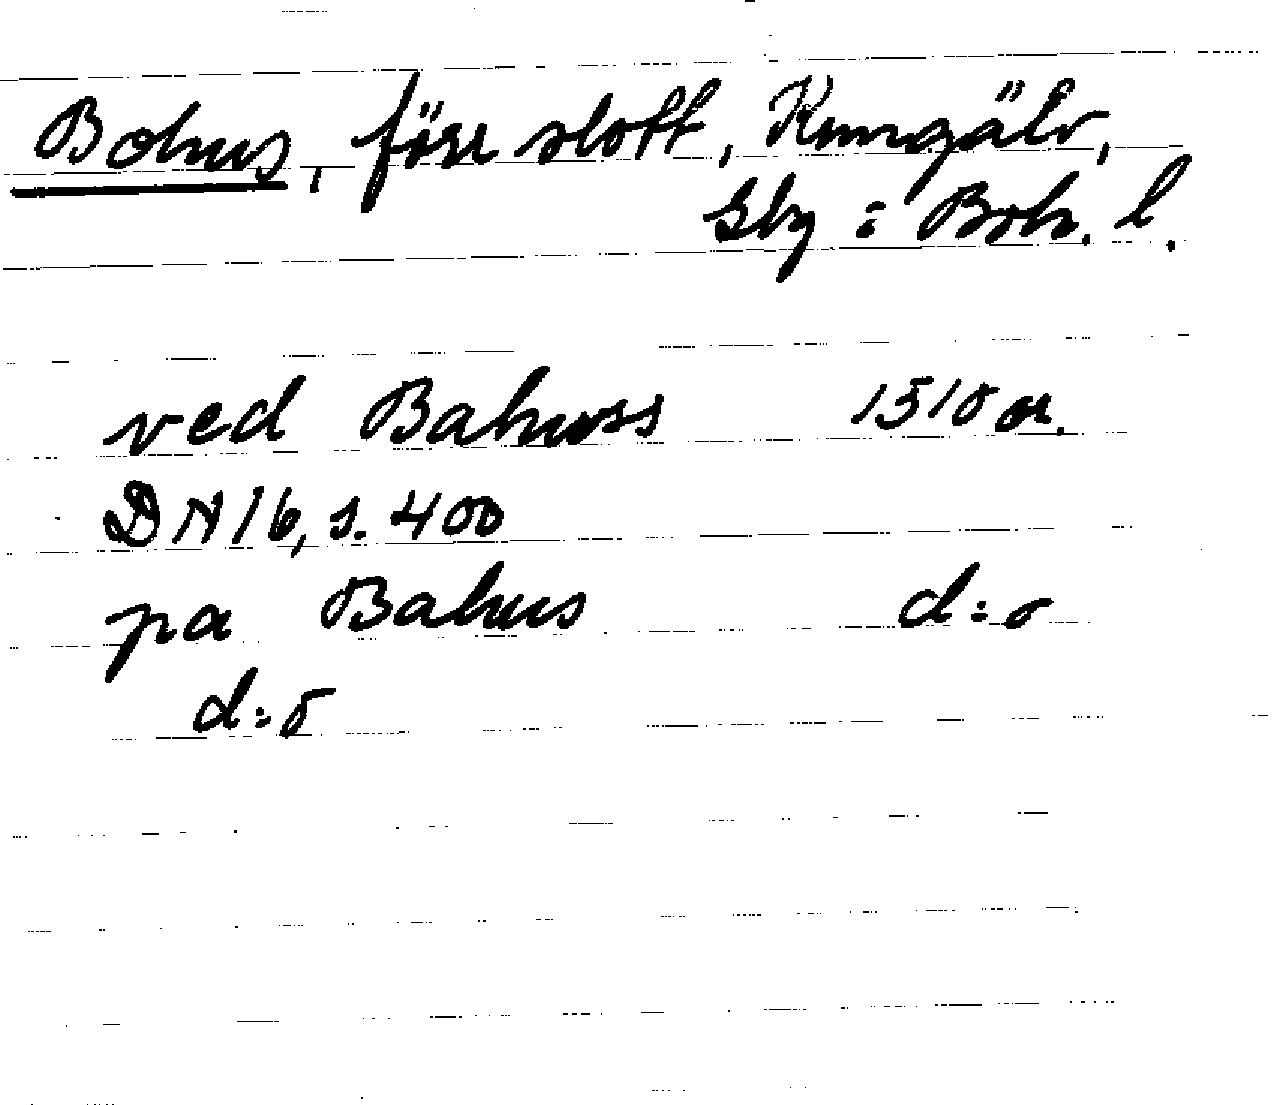 Bohus, förr slott, Kungälv,
Sby : Boh. l.
ved Bahuss 1510 or.
DN 16, s. 400
pa Bahus d:o
d:o